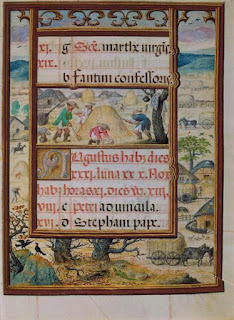 xi. g Scē. marthe virgīe
xix.
b fantum confessoris
Agustus habz dies
xxxi. luna xxx. Nox
habz horas xi. dies v̄o. xiii.
viii. c petri ad vincula.
xvi. d Stephani pape.